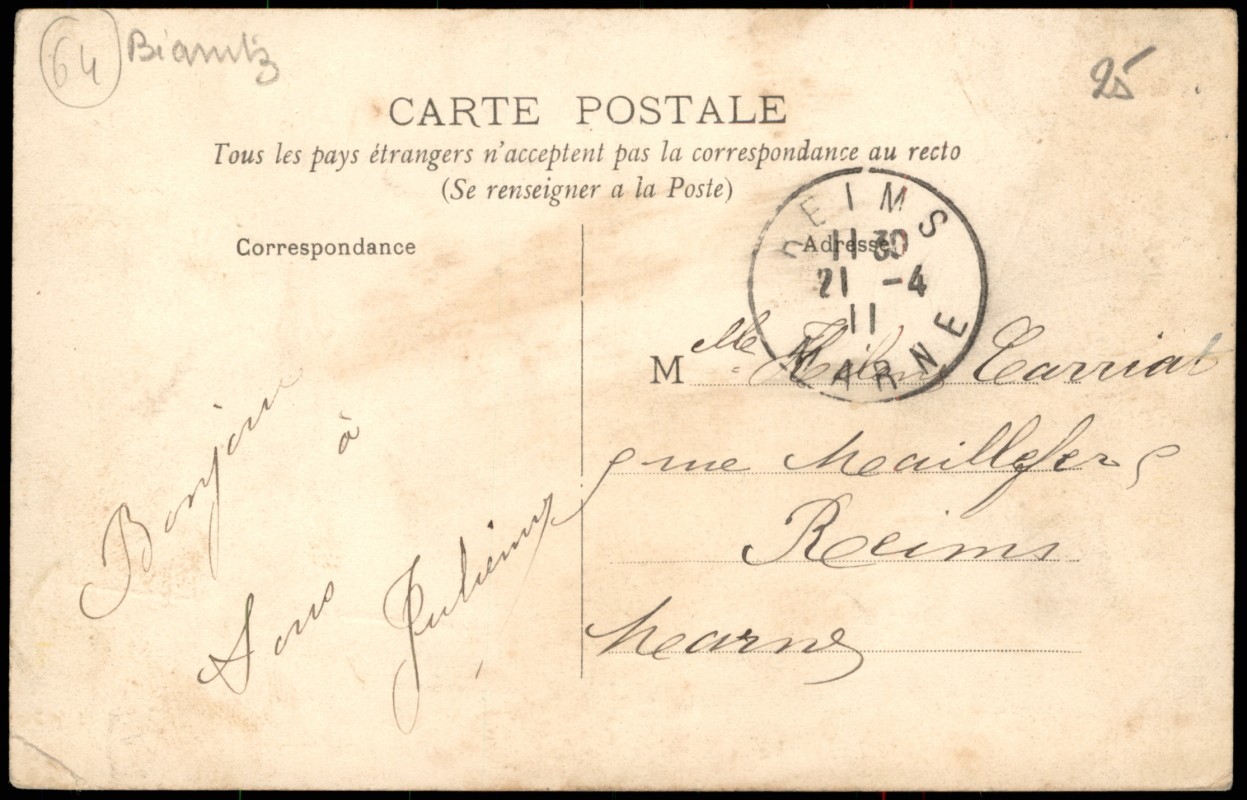 64 Biarritz
25
CARTE POSTALE
Tous les pays étrangers n'acceptent pas la correspondance au recto
(Se renseigner a la Poste)
Correspondance
Adresse
REIMS
11 30
21 -4
11
MARNE
M lle Hélène Carriat
rue Maillefer
Reims
Marne
Bonjour
à
Tous
Julienne